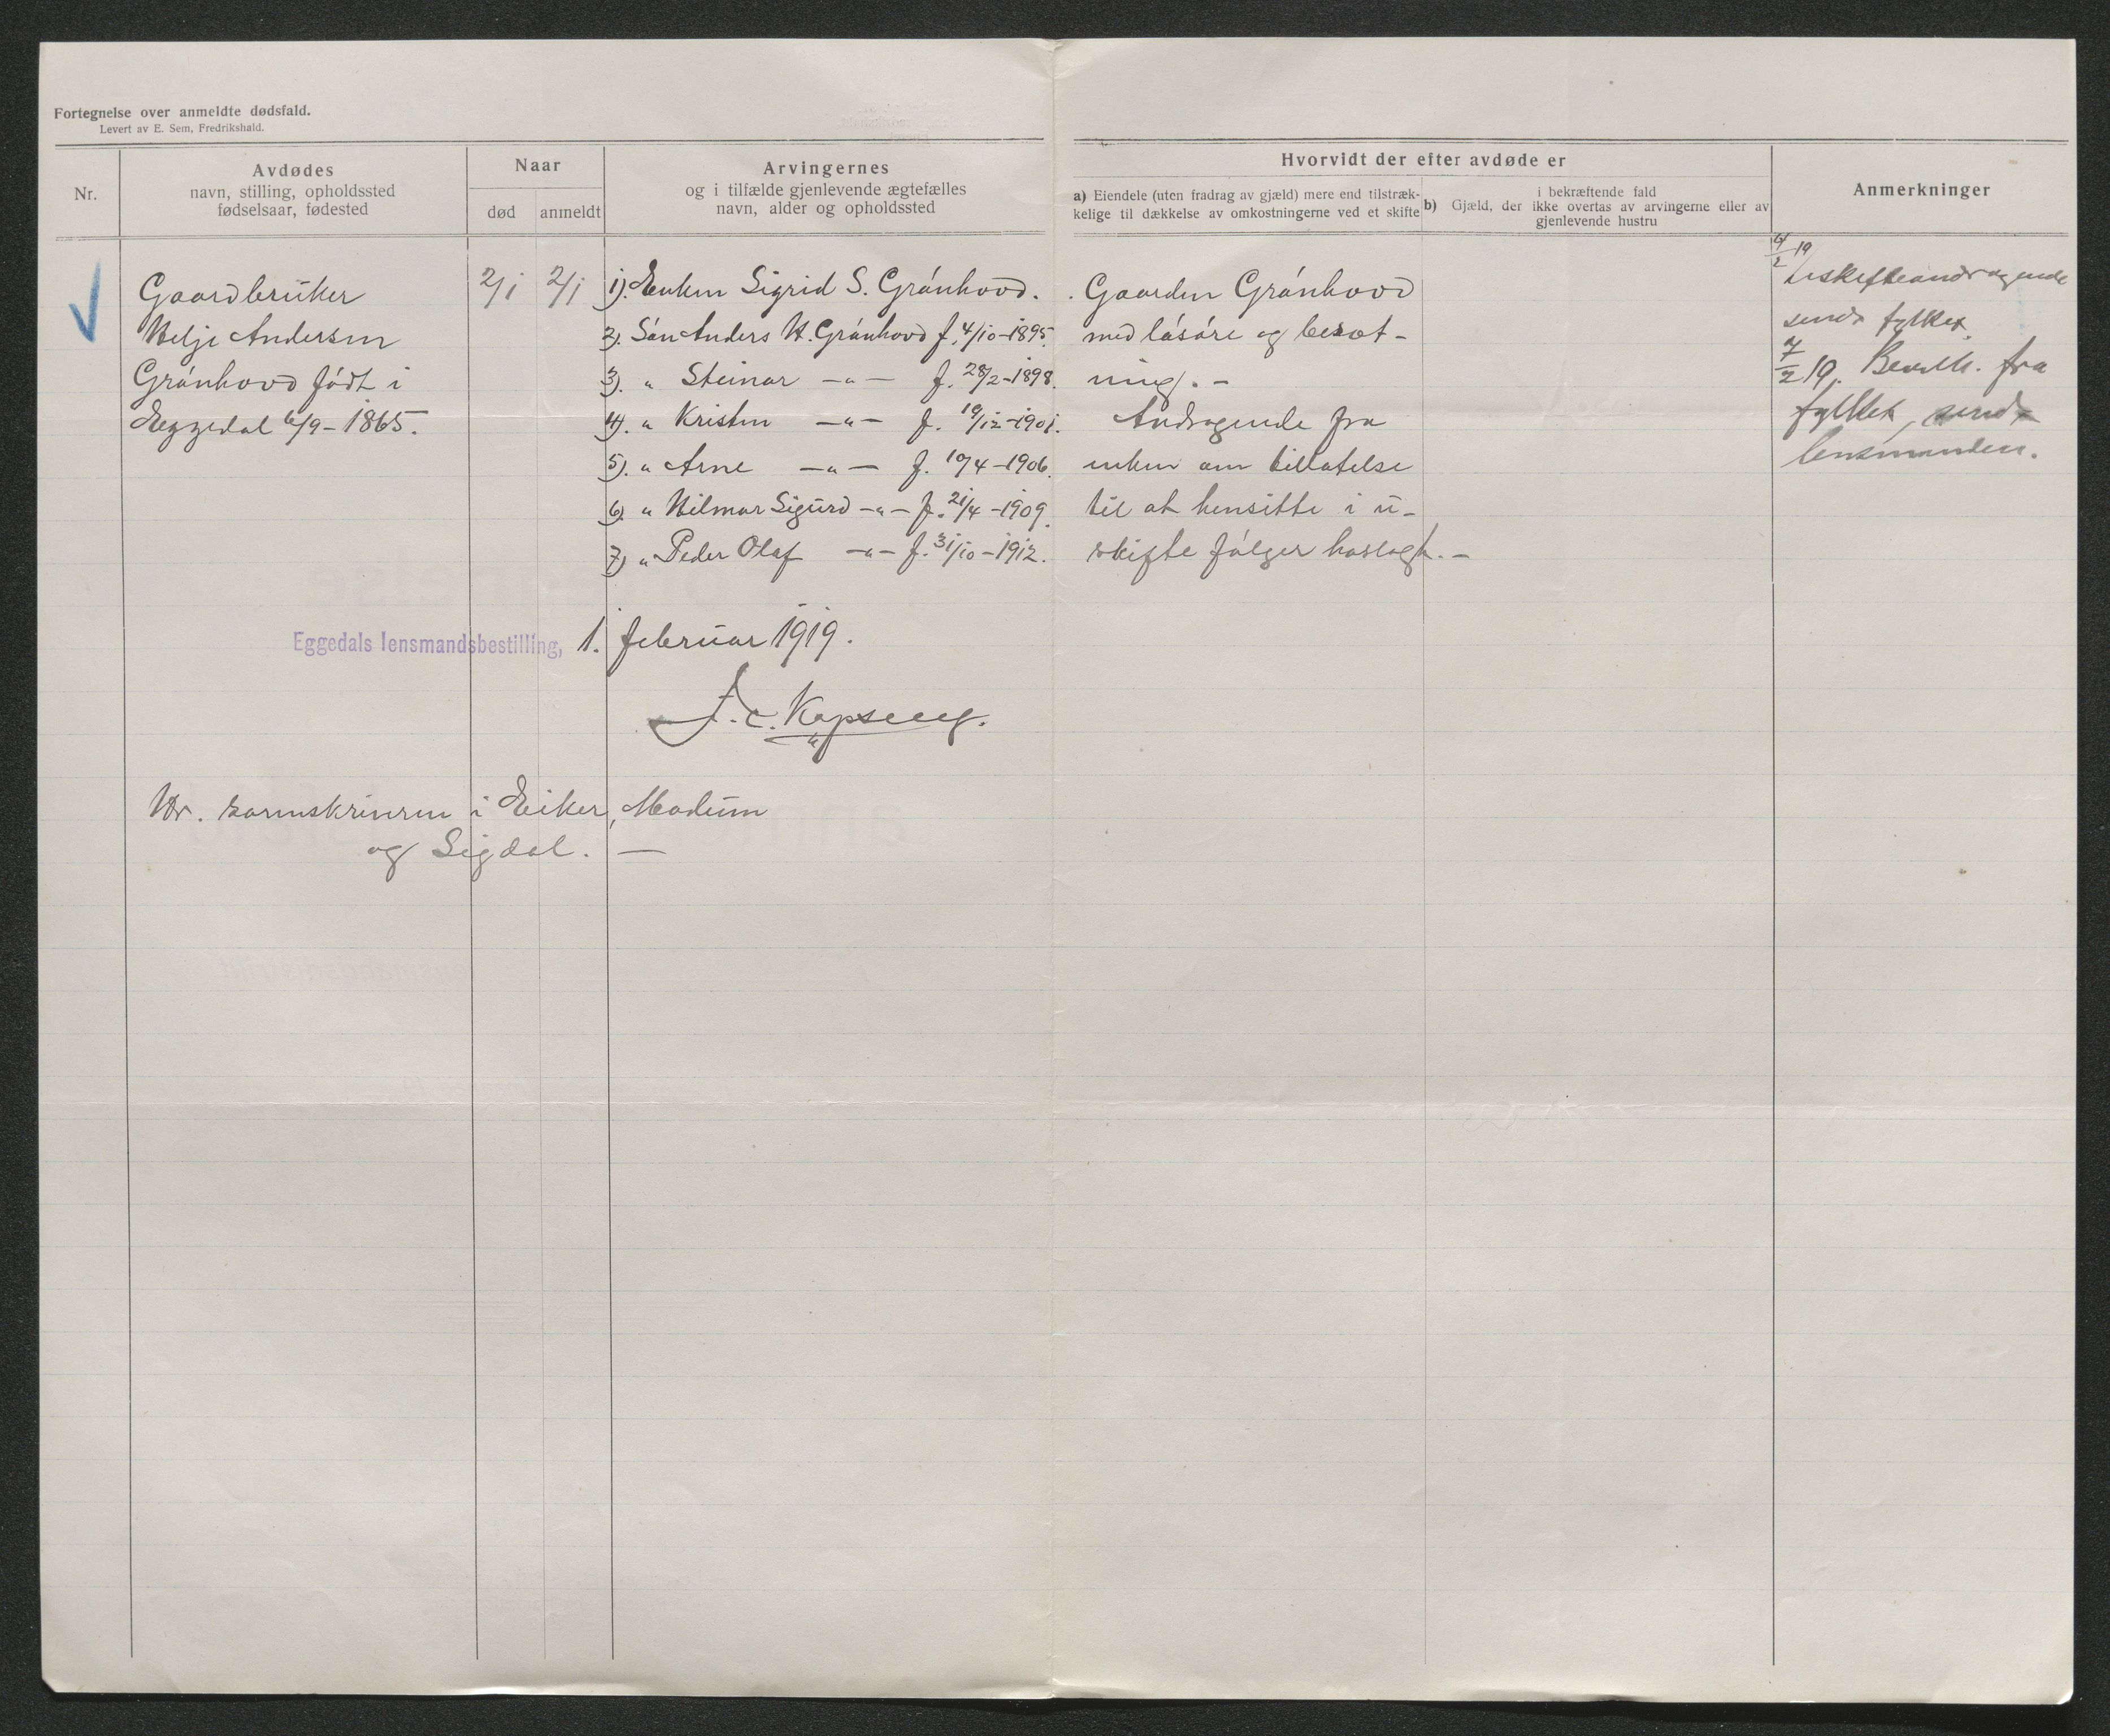 Fortegnelse over anmeldte dødsfald.
Levert av E. Sem, Fredrikshald.
Nr.
Avdødes
navn, stilling, opholdssted
fødselsaar, fødested
Naar
død
anmeldt
Arvingernes
og i tilfælde gjenlevende ægtefælles
navn, alder og opholdssted
Hvorvidt der efter avdøde er
a) Eiendele (uten fradrag av gjæld) mere end tilstræk-
kelige til dækkelse av omkostningerne ved et skifte
i bekræftende fald
b) Gjæld, der ikke overtas av arvingerne eller av
gjenlevende hustru
Anmerkninger
Gaardbruker
Helje Andersen
Grønhovd født i
Eggedal 6/9-1865.
2/1
2/1
1). Enken Sigrid S. Grønhovd.
2). Søn Anders H. Grønhovd f. 4/10-1895.
3). " Steinar -"- f. 28/2-1898.
4). " Kristen -"- f. 19/12-1901.
5). " Arne -"- f. 10/4-1906.
6). " Hilmar Sigurd -"- f. 21/4-1909.
7) " Peder Olaf -"- f. 31/10-1912.
Gaarden Grønhovd
med løsøre og besæt-
ning. -
Andragende fra
enken om tillatelse
til at hensitte i u-
skifte følger hoslagt. -
4/2 19
Uskifteandragende
sendt fylket.
7/2 19. Bevilh. fra
fylket, sendt
lensmanden.
Eggedals lensmandsbestilling, 1. februar 1919.
Hr. sorenskriveren i Eiker, Modum
og Sigdal. -